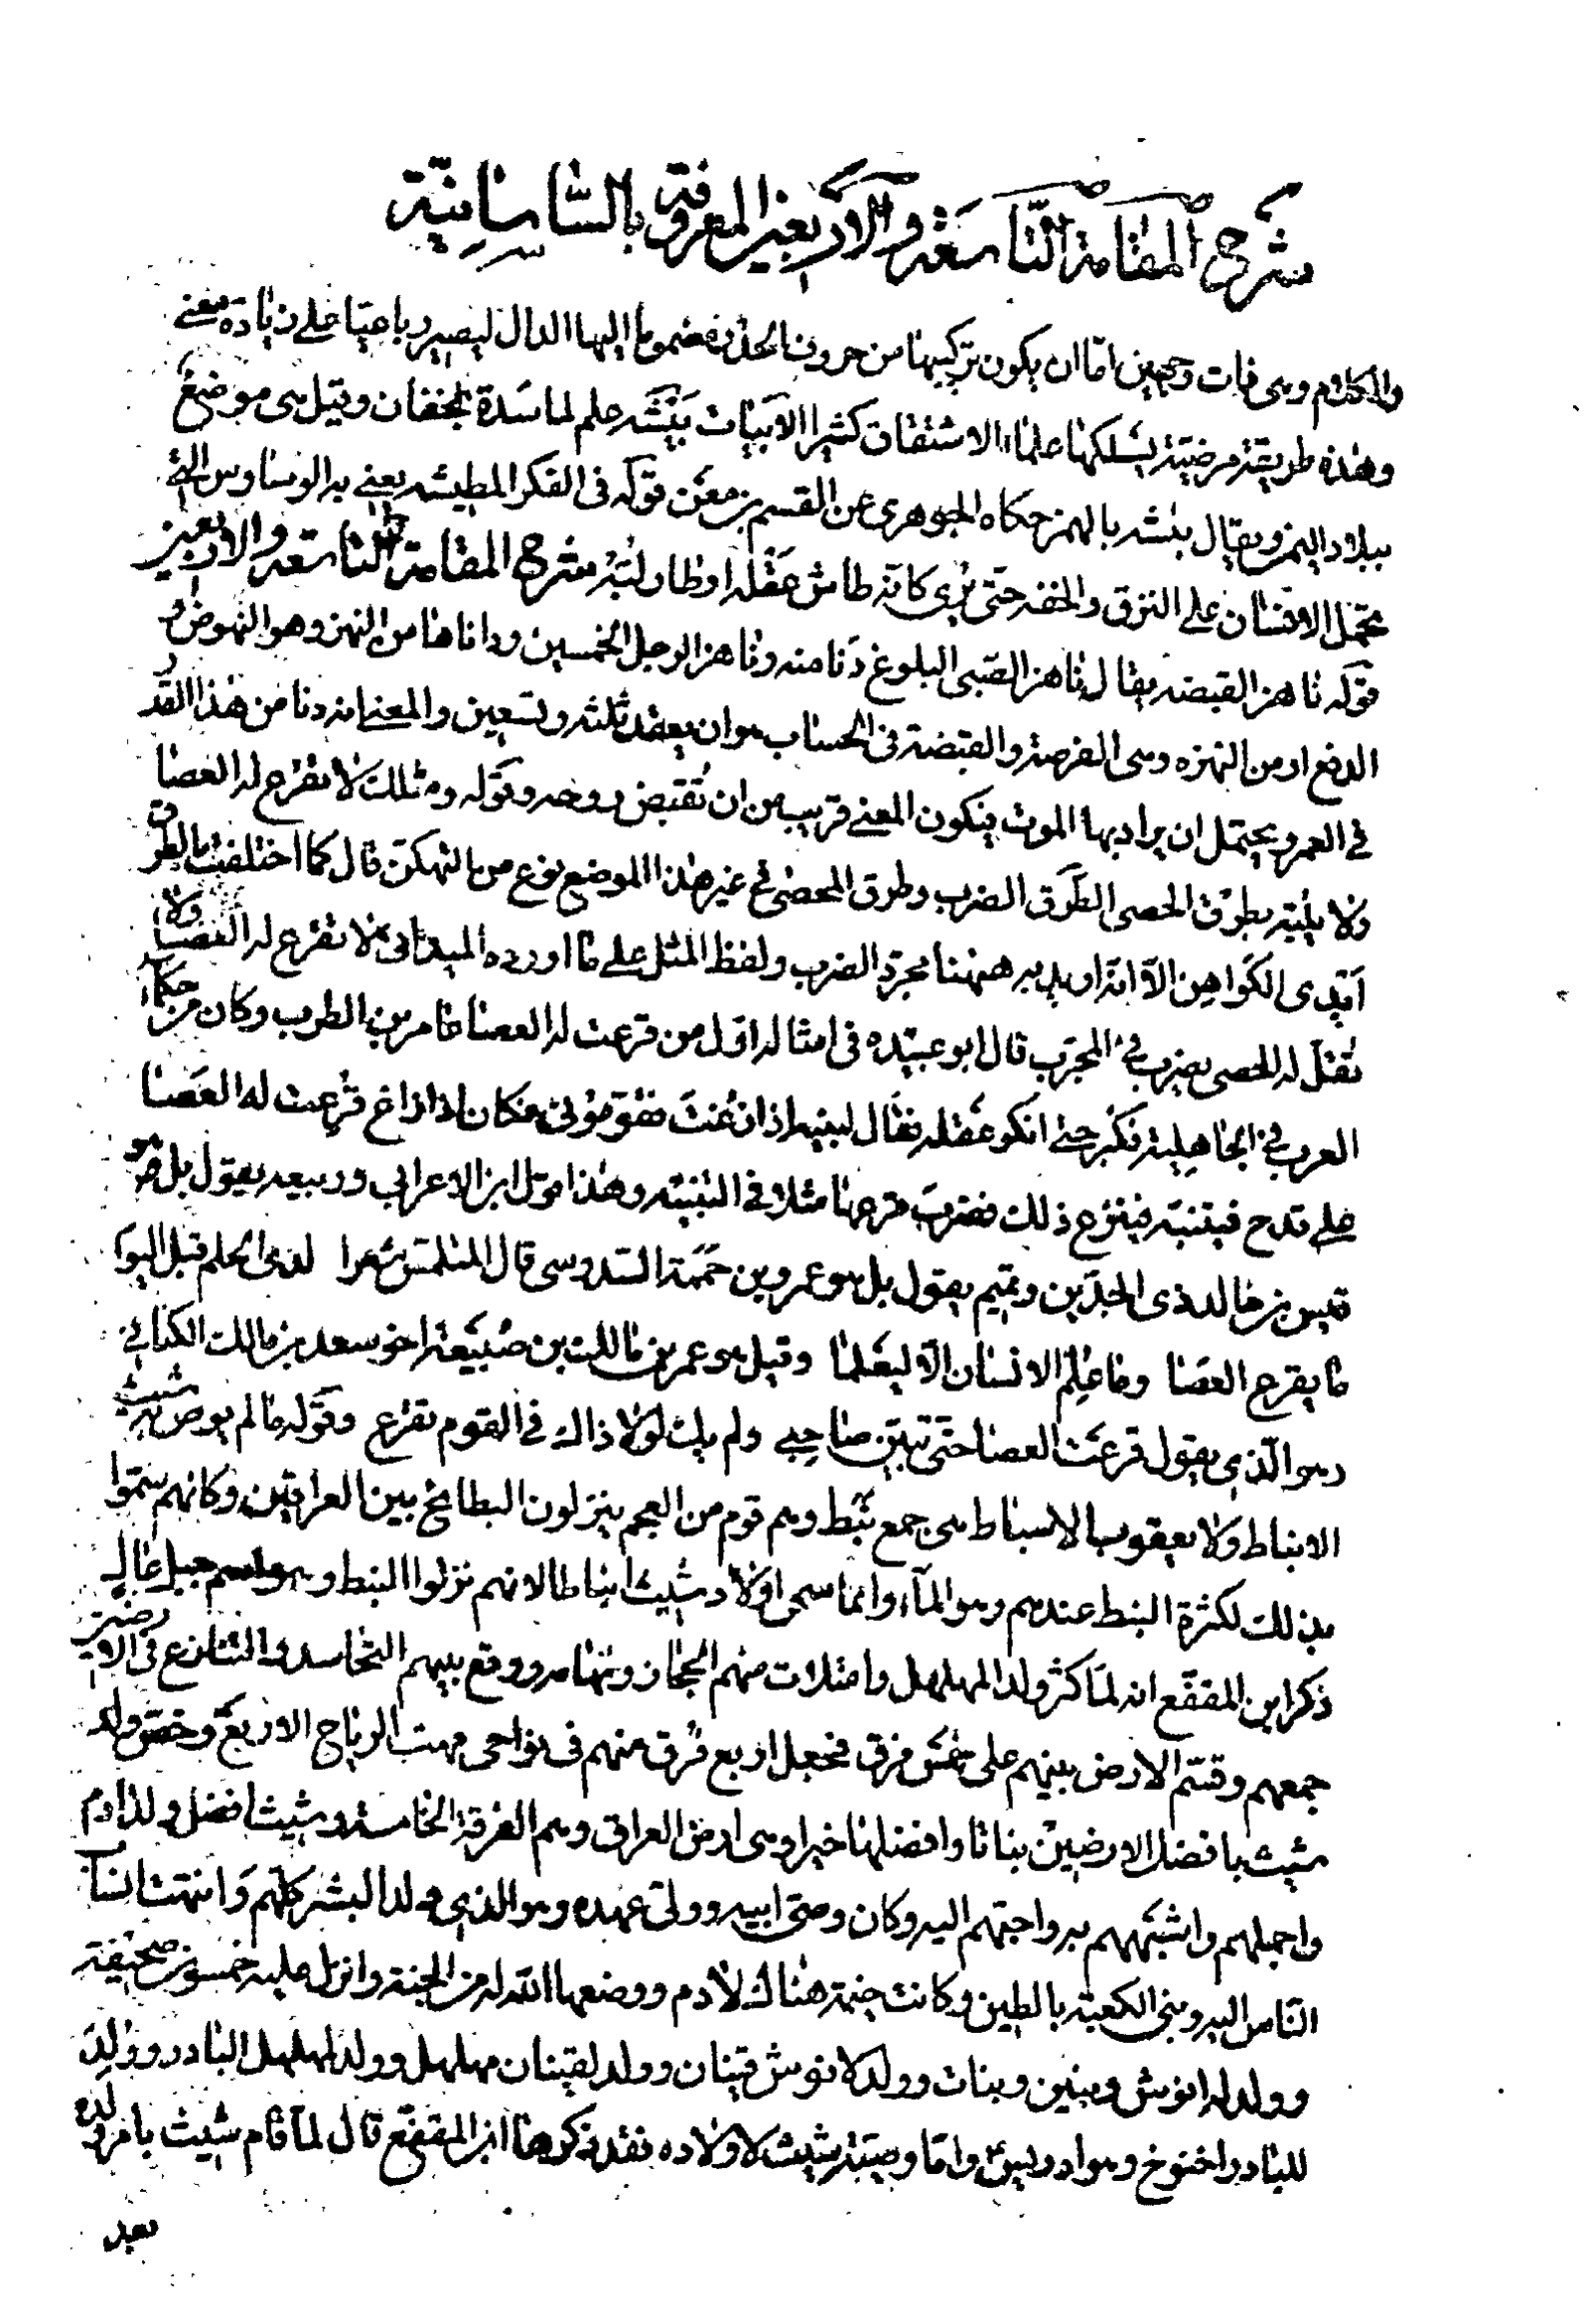 شرح المقامة التاسعة والاربعين المعروفة بالساسانية
والكلام وهى ذات وجهين اما ان يكون تركيبها من حروف الحذ مضموما اليها الدال ليصير رباعيا على زيادة معنى
وهذه طريقة مرضية يسلكها علماء الاشتقاق كثيرا الابيات بيشه علم لماسدة بخفان وقيل هى موضع
ببلاد اليمن ويقال بئشه بالهمز حكاه الجوهرى عن القسم بن معن قوله فى الفكر المطيشه يعنى به الوساوس التى
تحمل الانسان على النزق والخفه حتى يرى كانه طاش عقله او طار لبه شرح المقامة التاسعه والاربعين
قوله ناهز القبضه يقال ناهز الصبى البلوغ دنا منه وناهز الرجل الخمسين وداناها من النهز وهو النهوض
الدفع او من النهزه وهى الفرصة والقبضة فى الحساب هو ان يعقد ثلثه وتسعين والمعنى انه دنا من هذا القدر
فى العمر ويحتمل ان يراد بها الموت فيكون المعنى قريب من ان تقبض روحه وقوله ومثلك لا تقرع له العصا
ولا ينبه بطرق الحصى الطرق الضرب وطرق الحصى فى غير هذا الموضع نوع من التهكن قال كما اختلفت بالطرق
ايدى الكواهن الا انه اريد به ههنا مجرد الضرب ولفظ المثل على ما اورده الميدانى لا تقرع له العصا ولا
تقلل له الحصى يضرب فى المجرب قال ابو عبيده فى امثاله اول من قرعت له العصا عامر بن الظرب وكان من حكام
العرب فى الجاهلية فكبر حتى انكر عقله فقال لبنيه اذا زغت فقومونى فكان اذا زاغ قرعت له العصا
على قدح فيتنبه فينزع ذلك فضرب قرعها مثلا فى التنبيه وهذا قول ابن الاعرابى وربيعه يقول بل هو
قيس بن خالد ذى الجدين وتميم يقول بل هو عمرو بن حممة السدوسى قال المتلمس شعرا لذى الحلم قبل اليوم
ما يقرع العصا وما علم الانسان الا ليعلما وقيل هو عمرو بن مالك بن ضبيعة اخو سعد بن مالك الكنانى
وهو الذى يقول قرعت العصا حتى تبين صاحبى ولم يك لولا ذاك فى القوم تقرع وقوله ما لم يوص به شيث
الانباط ولا يعقوب الاسباط هى جمع نبط وهم قوم من العجم ينزلون البطايح بين العراقين وكانهم سموا
بذلك لكثرة النبط عندهم وهو الماء وانما سمى اولاد شيث انباطا لانهم نزلوا النبط وهو اسم جبل عال
ذكر ابن المقفع انه لما كثر ولد المهلهل وامتلات منهم الحجاز وتهامه ووقع بينهم التحاسد والتنازع فى الارضين
جمعهم وقسم الارض بينهم على خمس فرق فجعل اربع فرق منهم فى نواحى مهب الرياح الاربع وخص ولد
شيث بافضل الارضين بناتا وافضلها خيرا وهى ارض العراق وهم الفرقة الخامسة وشيث افضل ولد ادم
واجملهم واشبههم به واحبهم اليه وكان وصى ابيه وولى عهده وهو الذى ولد البشر كلهم وانتهت انساب
الناس اليه وبنى الكعبة بالطين وكانت خيمة هناك لادم ووضعها الله له من الجنة وانزل عليه خمسون صحيفة
وولد له انوش وبنين وبنات وولد لانوش قينان وولد لقينان مهلهل وولد لمهلهل اليادر وولد
لليادر اخنوخ وهو ادريس واما وصية شيث لاولاده فقد ذكرها ابن المقفع قال لما قام شيث بامر ولده
بعد